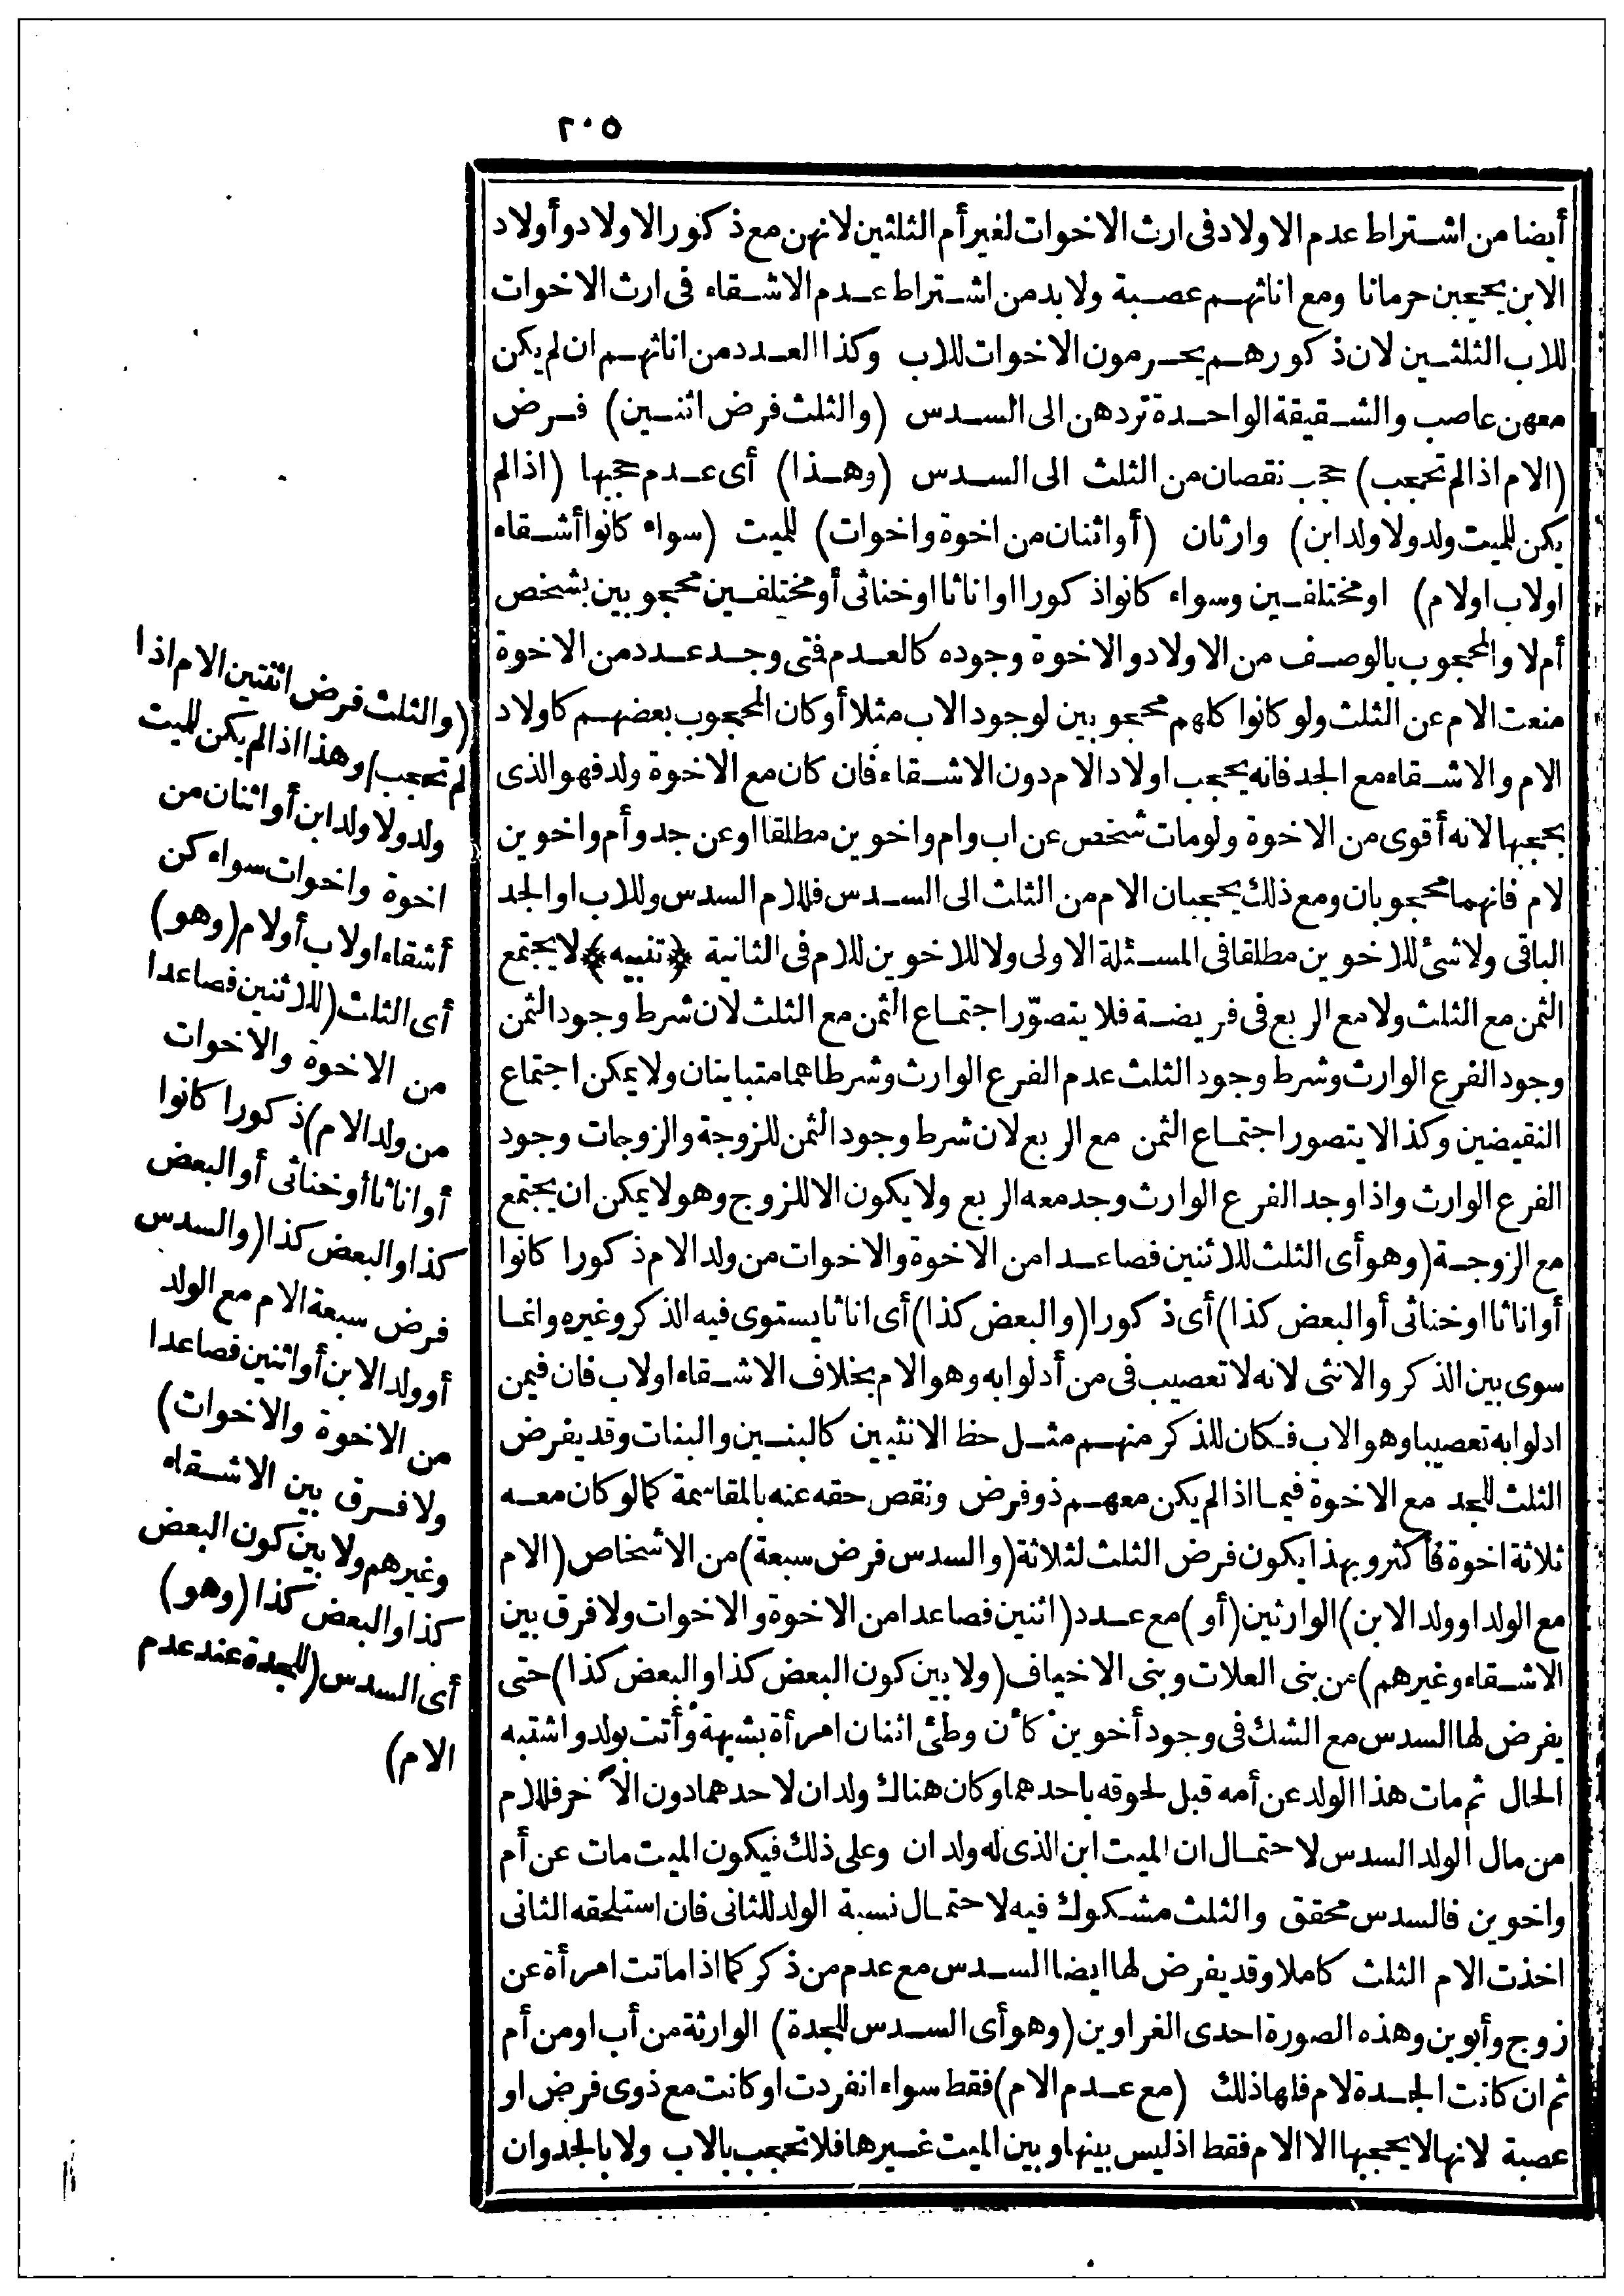 ٢٠٥
أيضا من اشتراط عدم الاولاد فى ارث الاخوات لغير أم الثلثين لانهن مع ذكور الاولاد وأولاد
الابن يحجبن حرمانا ومع اناثهم عصبة ولا بد من اشتراط عدم الاشقاء فى ارث الاخوات
للاب الثلثين لان ذكورهم يحرمون الاخوات للاب وكذا العدد من اناثهم ان لم يكن
معهن عاصب والشقيقة الواحدة تردهن الى السدس (والثلث فرض اثنين) فرض
(الام اذا لم تحجب) حجب نقصان من الثلث الى السدس (وهذا) أى عدم حجبها (اذا لم
يكن للميت ولد ولا ولد ابن) وارثان (أو اثنان من اخوة واخوات) للميت (سواء كانوا أشقاء
اولاب اولام) او مختلفين وسواء كانوا ذكورا او اناثا او خناثى أو مختلفين محجوبين بشخص
أم لا والمحجوب بالوصف من الاولاد والاخوة وجوده كالعدم فتى وجد عدد من الاخوة
منعت الام عن الثلث ولو كانوا كلهم محجوبين لوجود الاب مثلا أو كان المحجوب بعضهم كاولاد
الام والاشقاء مع الجد فانه يحجب اولاد الام دون الاشقاء فان كان مع الاخوة ولد فهو الذى
يحجبها لانه أقوى من الاخوة ولو مات شخص عن اب وام واخوين مطلقا او عن جد وأم واخوين
لام فانهما محجوبان ومع ذلك يحجبان الام من الثلث الى السدس فللام السدس وللاب او الجد
الباقى ولا شئ للاخوين مطلقا فى المسئلة الاولى ولا للاخوين للام فى الثانية ﴿تنبيه﴾ لا يجتمع
الثمن مع الثلث ولا مع الربع فى فريضة فلا يتصوّر اجتماع الثمن مع الثلث لان شرط وجود الثمن
وجود الفرع الوارث وشرط وجود الثلث عدم الفرع الوارث وشرطاهما متباينان ولا يمكن اجتماع
النقيضين وكذا لا يتصور اجتماع الثمن مع الربع لان شرط وجود الثمن للزوجة والزوجات وجود
الفرع الوارث واذا وجد الفرع الوارث وجد معه الربع ولا يكون الا للزوج وهو لا يمكن ان يجتمع
مع الزوجة (وهو أى الثلث للاثنين فصاعدا من الاخوة والاخوات من ولد الام ذكورا كانوا
أو اناثا او خناثى أو البعض كذا) أى ذكورا (والبعض كذا) أى اناثا يستوى فيه الذكر وغيره وانما
سوى بين الذكر والانثى لانه لا تعصيب فى من أدلوا به وهو الام بخلاف الاشقاء اولاب فان فيمن
ادلوا به تعصيبا وهو الاب فكان للذكر منهم مثل حظ الانثيين كالبنين والبنات وقد يفرض
الثلث للجد مع الاخوة فيما اذا لم يكن معهم ذو فرض ونقص حقه عنه بالمقاسمة كما لو كان معه
ثلاثة اخوة فأكثر وبهذا يكون فرض الثلث لثلاثة (والسدس فرض سبعة) من الاشخاص (الام
مع الولد او ولد الابن) الوارثين (أو) مع عدد (اثنين فصاعدا من الاخوة والاخوات ولا فرق بين
الاشقاء وغيرهم) من بنى العلات وبنى الاخياف (ولا بين كون البعض كذا والبعض كذا) حتى
يفرض لها السدس مع الشك فى وجود أخوين كأن وطئ اثنان امرأة بشبهة وأتت بولد واشتبه
الحال ثم مات هذا الولد عن أمه قبل لحوقه باحدهما وكان هناك ولدان لاحدهما دون الآخر فللام
من مال الولد السدس لاحتمال ان الميت ابن الذى له ولدان وعلى ذلك فيكون الميت مات عن أم
واخوين فالسدس محقق والثلث مشكوك فيه لاحتمال نسبة الولد للثانى فان استلحقه الثانى
اخذت الام الثلث كاملا وقد يفرض لها ايضا السدس مع عدم من ذكر كما اذا ماتت امرأة عن
زوج وأبوين وهذه الصورة احدى الغراوين (وهو أى السدس للجدة) الوارثة من أب او من أم
ثم ان كانت الجدة لام فلها ذلك (مع عدم الام) فقط سواء انفردت او كانت مع ذوى فرض او
عصبة لانها لا يحجبها الا الام فقط اذ ليس بينها وبين الميت غيرها فلا تحجب بالاب ولا بالجد وان
(والثلث فرض اثنتين الام اذا
لم تحجب) وهذا اذا لم يكن للميت
ولد ولا ولد ابن أو اثنان من
اخوة واخوات سواء كن
أشقاء اولاب أولام (وهو)
أى الثلث (للاثنين فصاعدا
من الاخوة والاخوات
من ولد الام) ذكورا كانوا
أو اناثا أو خناثى أو البعض
كذا والبعض كذا (والسدس
فرض سبعة الام مع الولد
أو ولد الابن أو اثنين فصاعدا
من الاخوة والاخوات)
ولا فرق بين الاشقاء
وغيرهم ولا بين كون البعض
كذا والبعض كذا (وهو)
أى السدس (للجدة عند عدم
الام)